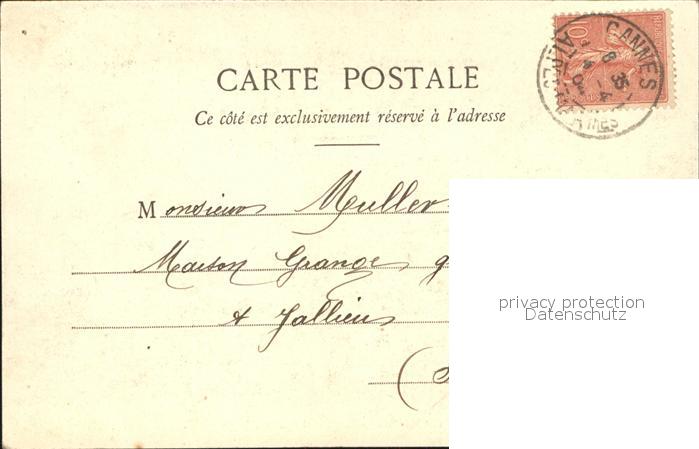 CARTE POSTALE
Ce côté est exclusivement réservé à l'adresse
Monsieur Muller
Maison Grange
à Jallieu
(
privacy protection
Datenschutz
CANNES
10